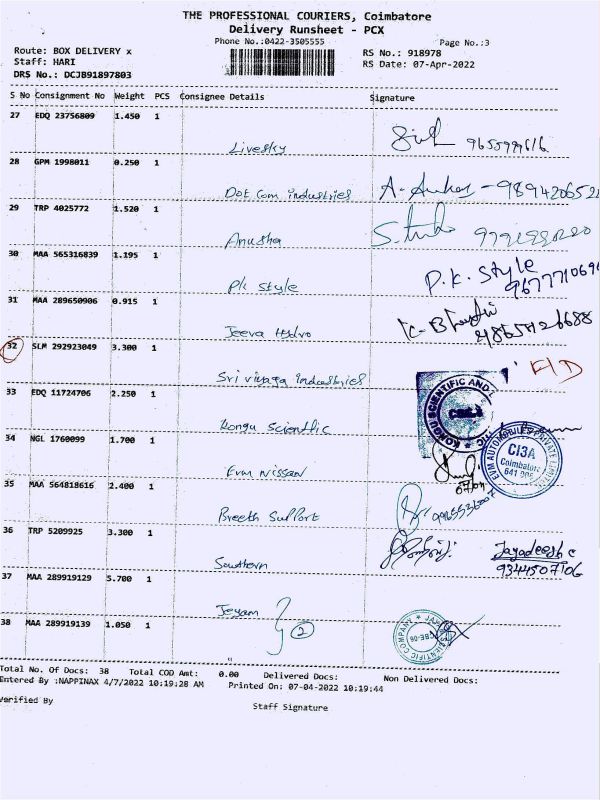 THE PROFESSIONAL COURIERS, Coimbatore
Delivery Runsheet - PCX
Phone No.:0422-3505555
Page No.:3
Route: BOX DELIVERY x
RS No.: 918978
Staff: HARI
RS Date: 07-Apr-2022
DRS No.: DCJB91897803
S No Consignment No Weight PCS Consignee Details Signature
27 EDQ 23756809 1.450 1
Livesky
28 GPM 1998011 0.250 1
Dot Com industries
29 TRP 4025772 1.520 1
Anusha
30 MAA 565316839 1.195 1
Pk Style P.K. Style
31 MAA 289650906 0.915 1
Jeeva Hydro
32 SLM 292923049 3.300 1
industries
33 EDQ 11724706 2.250 1
Kongu Scientific
KONGU SCIENTIFIC AND
34 NGL 1760099 1.700 1
Evm Nissan
EVM AUTOMOBILES PRIVATE LIMITED
CI3A
Coimbatore
35 MAA 564818616 2.400 1
Support
36 TRP 5209925 3.300 1
Southern
Jayadeesh c
37 MAA 289919129 5.700 1
Jeyam
2
38 MAA 289919139 1.050 1
SCIENTIFIC COMPANY
Total No. Of Docs: 38 Total COD Amt: 0.00 Delivered Docs: Non Delivered Docs:
Entered By :NAPPINAX 4/7/2022 10:19:28 AM Printed On: 07-04-2022 10:19:44
Verified By
Staff Signature